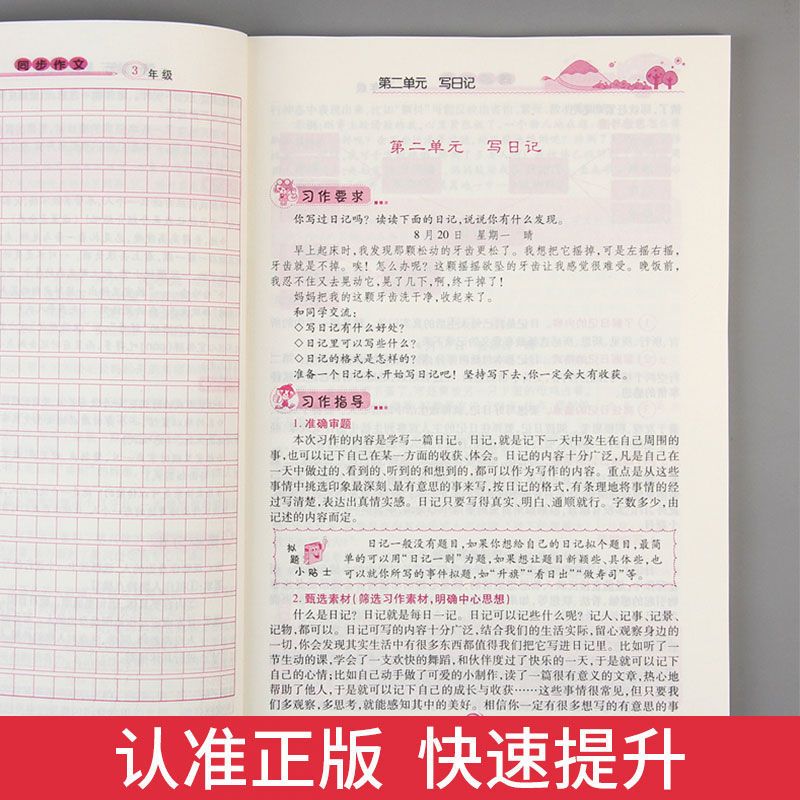 同步作文
3年级
第二单元 写日记
第二单元 写日记
习作要求
你写过日记吗?读读下面的日记,说说你有什么发现。
8月20日 星期一 晴
早上起床时,我发现那颗松动的牙齿更松了。我想把它摇掉,可是左摇右摇,
牙齿就是不掉。唉!怎么办呢?这颗摇摇欲坠的牙齿让我感觉很难受。晚饭前,
我忍不住又去晃动它,晃了几下,啊,终于掉了!
妈妈把我的这颗牙齿洗干净,收起来了。
和同学交流:
◇写日记有什么好处?
◇日记里可以写些什么?
◇日记的格式是怎样的?
准备一个日记本,开始写日记吧!坚持写下去,你一定会大有收获。
习作指导
1. 准确审题
本次习作的内容是学写一篇日记。日记,就是记下一天中发生在自己周围的
事,也可以记下自己在某一方面的收获、体会。日记的内容十分广泛,凡是自己在
一天中做过的、看到的、听到的和想到的,都可以作为写作的内容。重点是从这些
事情中挑选印象最深刻、最有意思的事来写,按日记的格式,有条理地将事情的经
过写清楚,表达出真情实感。日记只要写得真实、明白、通顺就行。字数多少,由
记述的内容而定。
拟题
小贴士
日记一般没有题目,如果你想给自己的日记拟个题目,最简
单的可以用“日记一则”为题,如果想让题目新颖些、具体些,也
可以就你所写的事件拟题,如“升旗”“看日出”“做寿司”等。
2. 甄选素材(筛选习作素材,明确中心思想)
什么是日记?日记就是每日一记。日记可以记些什么呢?记人、记事、记景、
记物,都可以。日记可写的内容十分广泛,结合我们的生活实际,留心观察身边的
一切,你会发现其实生活中有很多东西都值得我们把它写进日记里。比如听了一
节生动的课,学会了一支欢快的舞蹈,和伙伴度过了快乐的一天,于是就可以记下
自己的心情;比如自己动手做了可爱的小制作,读了一篇很有意义的文章,热心地
帮助了他人,于是就可以记下自己的成长与收获……这些事情很常见,但只要我
们多观察,多思考,就能感知其中的美好。相信你一定有很多想写的有意思的事
认准正版 快速提升